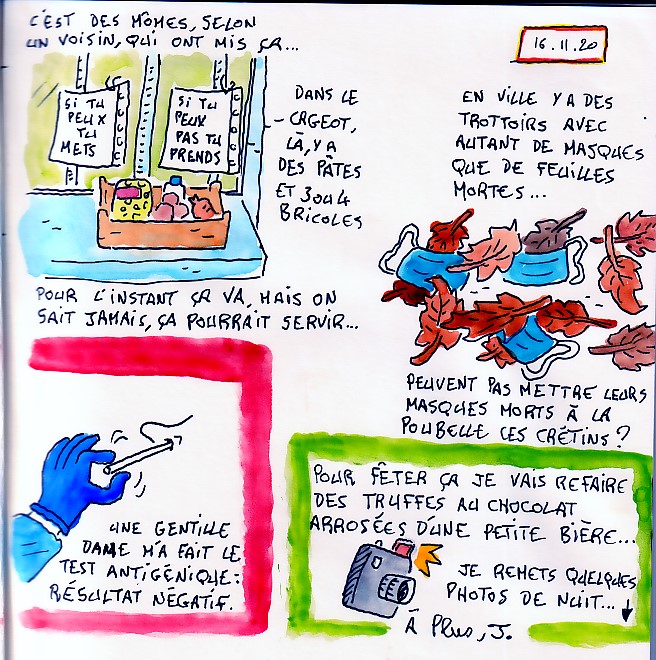 C'EST DES MÔMES, SELON
UN VOISIN, QUI ONT MIS ÇA...
SI TU
PEUX
TU
METS
SI TU
PEUX
PAS TU
PRENDS
DANS LE
CAGEOT,
LÀ, Y A
DES PÂTES
ET 3 OU 4
BRICOLES
POUR L'INSTANT ÇA VA, MAIS ON
SAIT JAMAIS, ÇA POURRAIT SERVIR...
16.11.20
EN VILLE Y A DES
TROTTOIRS AVEC
AUTANT DE MASQUES
QUE DE FEUILLES
MORTES...
PEUVENT PAS METTRE LEURS
MASQUES MORTS À LA
POUBELLE CES CRÉTINS ?
UNE GENTILLE
DAME M'A FAIT LE
TEST ANTIGÉNIQUE :
RÉSULTAT NÉGATIF.
POUR FÊTER ÇA JE VAIS REFAIRE
DES TRUFFES AU CHOCOLAT
ARROSÉES D'UNE PETITE BIÈRE...
JE REMETS QUELQUES
PHOTOS DE NUIT...
À PLUS, J.